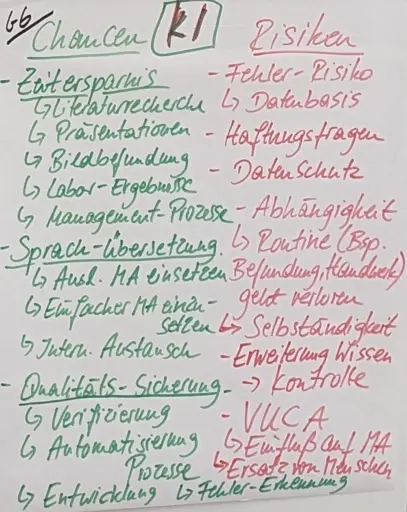 G6
Chancen
KI
Risiken
- Zeitersparnis
↳ Literaturrecherche
↳ Präsentationen
↳ Bildbefundung
↳ Labor-Ergebnisse
↳ Management-Prozesse
- Sprach-Übersetzung
↳ Ausl. MA einsetzen
↳ Einfacher MA einzu-
setzen
↳ Intern. Austausch
- Qualitäts-Sicherung
↳ Verifizierung
↳ Automatisierung
Prozesse
↳ Entwicklung ↳ Fehler-Erkennung
- Fehler-Risiko
↳ Datenbasis
- Haftungsfragen
- Datenschutz
- Abhängigkeit
↳ Routine (Bsp.
Befundung, Handwerk)
geht verloren
↳ Selbständigkeit
- Erweiterung Wissen
→ Kontrolle
- VUCA
↳ Einfluß auf MA
↳ Ersatz von Menschen